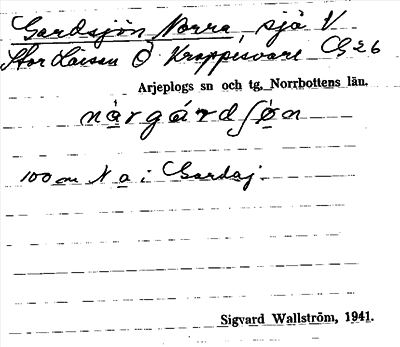 Gardsjön Norra, sjö V
Stor Laisan Ö Krappisvare CG 26
Arjeplogs sn och tg, Norrbottens län.
nårgárdʃøn
100 m N a i Gardsj.
Sigvard Wallström, 1941.